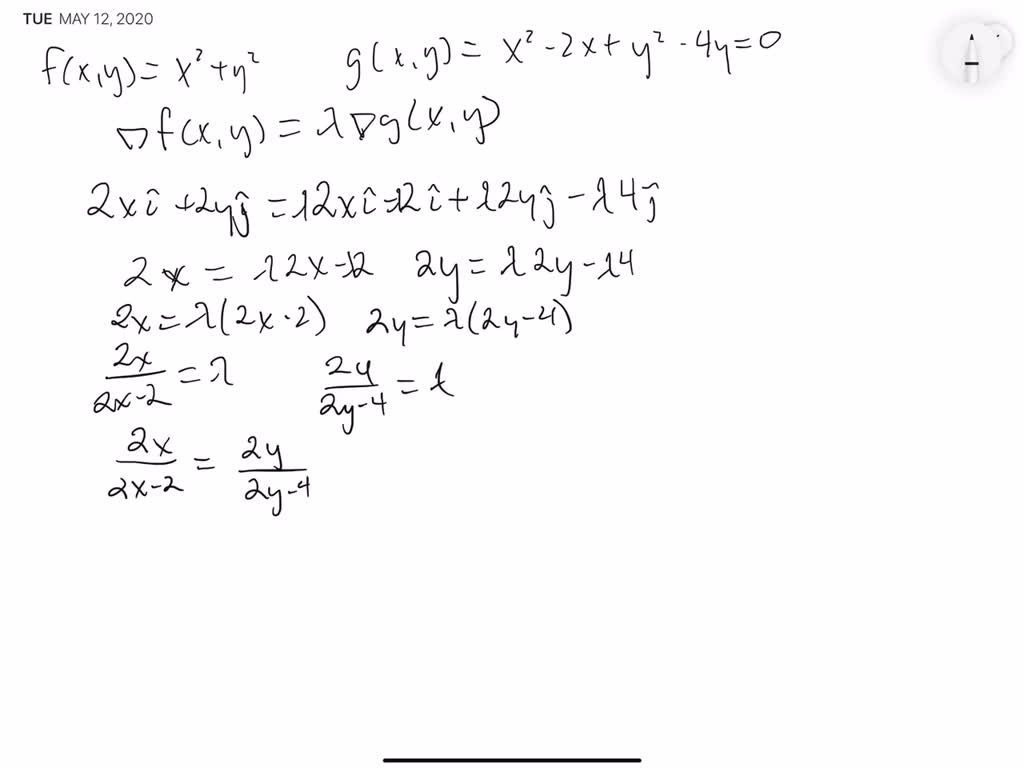 TUE MAY 12, 2020
f(x,y) = x² + y² g(x,y) = x² - 2x + y² - 4y = 0
▽f(x,y) = λ▽g(x,y)
2xî + 2yĵ = λ2xî - λ2î + λ2yĵ - λ4ĵ
2x = λ2x - λ2 2y = λ2y - λ4
2x = λ(2x - 2) 2y = λ(2y - 4)
2x/(2x-2) = λ 2y/(2y-4) = λ
2x/(2x-2) = 2y/(2y-4)